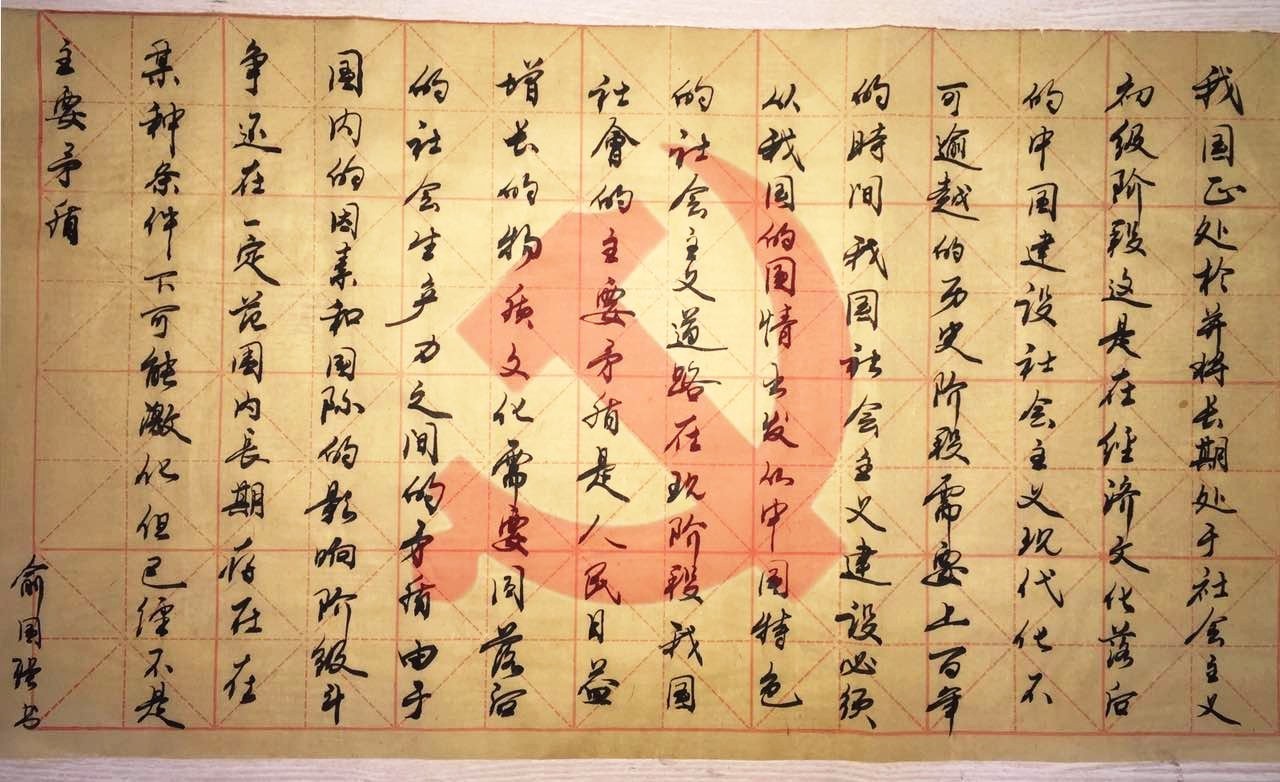 我国正处於并将长期处于社会主义
初级阶段这是在经济文化落后
的中国建设社会主义现代化不
可逾越的历史阶段需要上百年
的時间我国社会主义建设必须
从我国的国情出发中国特色
的社会主义道路在现阶段我国
社會的主要矛盾是人民日益
增长的物质文化需要同落后
的社会生产力之间的矛盾由于
国内的因素和国际的影响阶级斗
争还在一定范围内長期存在在
某种条件下可能激化但已经不是
主要矛盾
俞国书